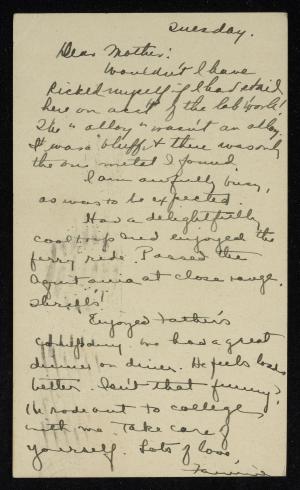 Tuesday.
Dear Mother:
Wouldn't I have
kicked myself if I had staid
here on acc't of the lab work!
The "alloy" wasn't an alloy.
It was a bluff & there was only
the one metal I found.
I am awfully busy,
as was to be expected.
Had a delightfully
cool trip and enjoyed the
ferry ride. Passed the
Aquitania at close range.
Thrills!
Enjoyed Father's
company. We had a great
dinner on diner. He feels loads
better. Isn't that funny?
He rode out to college
with me. Take care of
yourself. Lots of love,
Fannie